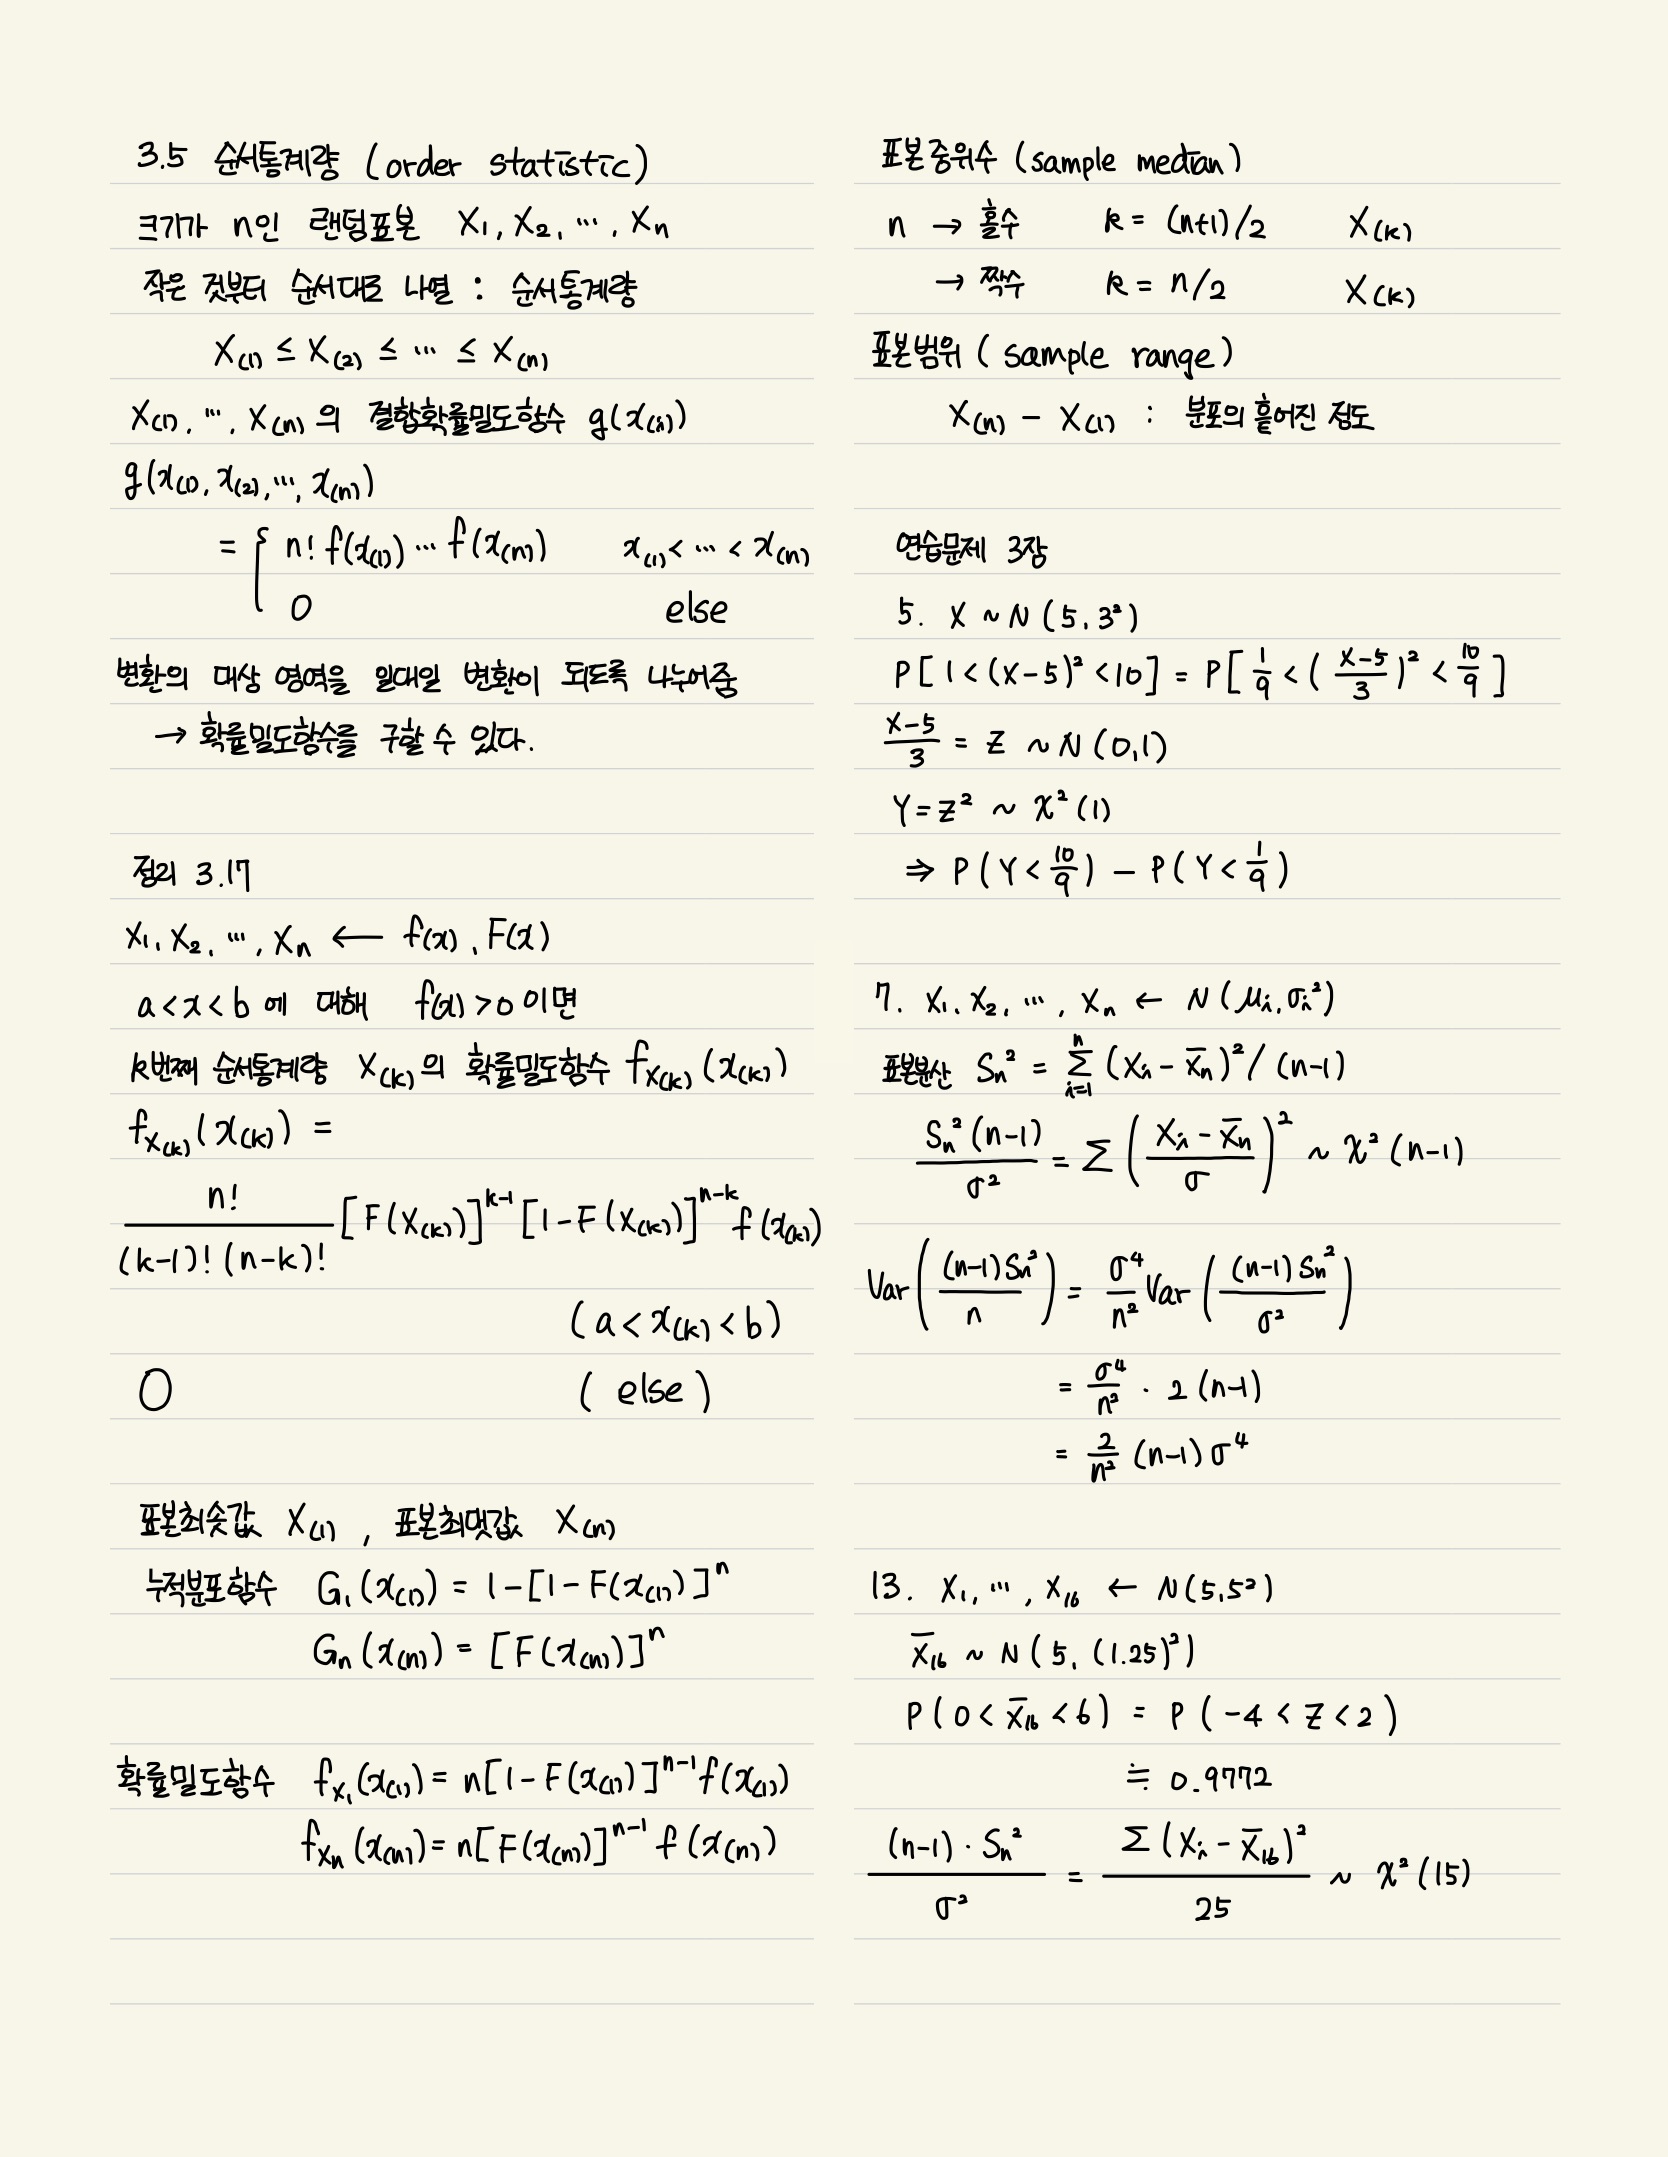 3.5 순서통계량 (order statistic)
크기가 n인 랜덤표본 X₁, X₂, ⋯, Xₙ
작은 것부터 순서대로 나열 : 순서통계량
X₍₁₎ ≤ X₍₂₎ ≤ ⋯ ≤ X₍ₙ₎
X₍₁₎, ⋯, X₍ₙ₎의 결합확률밀도함수 g(x₍ᵢ₎)
g(x₍₁₎, x₍₂₎, ⋯, x₍ₙ₎)
= { n! f(x₍₁₎) ⋯ f(x₍ₙ₎)   x₍₁₎ < ⋯ < x₍ₙ₎
0   else
변환의 대상 영역을 일대일 변환이 되도록 나누어줌
→ 확률밀도함수를 구할 수 있다.
정리 3.17
X₁, X₂, ⋯, Xₙ ← f(x), F(x)
a < x < b 에 대해 f(x) > 0 이면
k번째 순서통계량 X₍ₖ₎의 확률밀도함수 f_X₍ₖ₎(x₍ₖ₎)
f_X₍ₖ₎(x₍ₖ₎) =
n! / (k-1)!(n-k)! [F(X₍ₖ₎)]^(k-1) [1-F(X₍ₖ₎)]^(n-k) f(x₍ₖ₎)
(a < x₍ₖ₎ < b)
0   (else)
표본최솟값 X₍₁₎, 표본최댓값 X₍ₙ₎
누적분포함수 G₁(x₍₁₎) = 1-[1-F(x₍₁₎)]ⁿ
Gₙ(x₍ₙ₎) = [F(x₍ₙ₎)]ⁿ
확률밀도함수 f_X₁(x₍₁₎) = n[1-F(x₍₁₎)]^(n-1) f(x₍₁₎)
f_Xₙ(x₍ₙ₎) = n[F(x₍ₙ₎)]^(n-1) f(x₍ₙ₎)
표본중위수 (sample median)
n → 홀수   k = (n+1)/2   X₍ₖ₎
→ 짝수   k = n/2   X₍ₖ₎
표본범위 (sample range)
X₍ₙ₎ - X₍₁₎ : 분포의 흩어진 정도
연습문제 3장
5. X ~ N(5, 3²)
P[1 < (X-5)² < 10] = P[1/9 < ((X-5)/3)² < 10/9]
(X-5)/3 = Z ~ N(0,1)
Y = Z² ~ χ²(1)
⇒ P(Y < 10/9) - P(Y < 1/9)
7. X₁, X₂, ⋯, Xₙ ← N(μᵢ, σᵢ²)
표본분산 Sₙ² = Σ_(i=1)^n (Xᵢ - X̄ₙ)² / (n-1)
Sₙ²(n-1) / σ² = Σ((Xᵢ - X̄ₙ)/σ)² ~ χ²(n-1)
Var((n-1)Sₙ²/n) = σ⁴/n² Var((n-1)Sₙ²/σ²)
= σ⁴/n² · 2(n-1)
= 2/n² (n-1)σ⁴
13. X₁, ⋯, X₁₆ ← N(5, 5²)
X̄₁₆ ~ N(5, (1.25)²)
P(0 < X̄₁₆ < 6) = P(-4 < Z < 2)
≒ 0.9772
(n-1)·Sₙ² / σ² = Σ(Xᵢ - X̄₁₆)² / 25 ~ χ²(15)